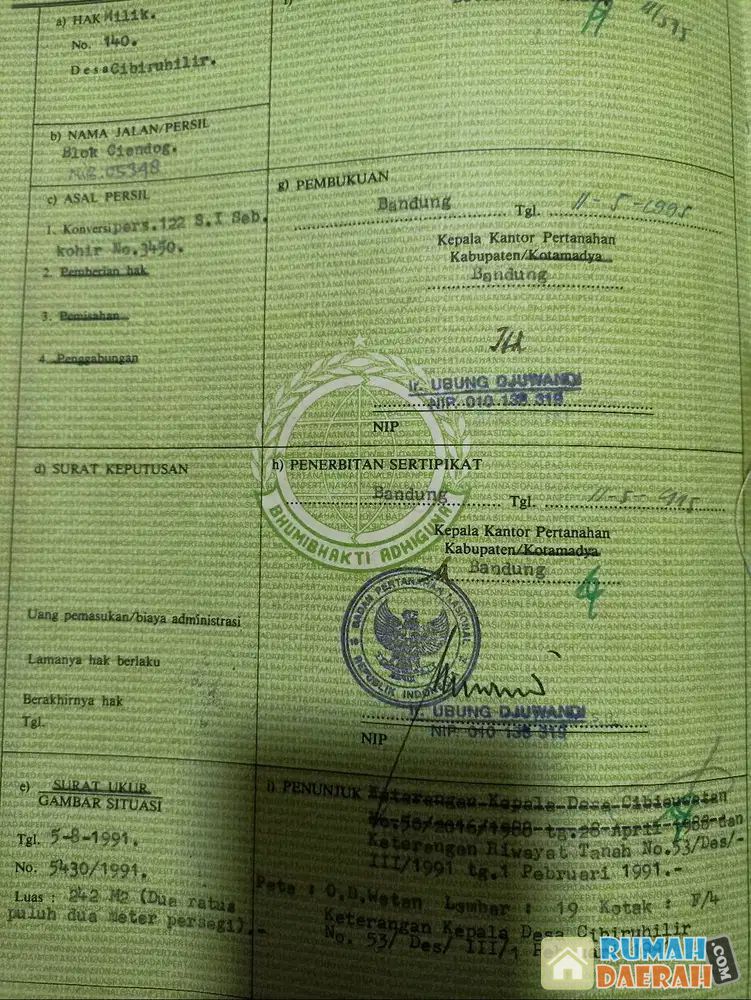 a) HAK Milik.
No. 140.
Desa Cibiruhilir.
b) NAMA JALAN/PERSIL
Blok Ciendog.
05348
c) ASAL PERSIL
1. Konversi pers.122 S.I Seb.
kohir No.3450.
2. Pemberian hak
3. Pemisahan
4. Penggabungan
d) SURAT KEPUTUSAN
Uang pemasukan/biaya administrasi
Lamanya hak berlaku
Berakhirnya hak
Tgl.
e) SURAT UKUR
GAMBAR SITUASI
Tgl. 5-8-1991.
No. 5430/1991.
Luas : 242 M2 (Dua ratus
puluh dua meter persegi).-
f)
g) PEMBUKUAN
Bandung Tgl. 11-5-1995
Kepala Kantor Pertanahan
Kabupaten/Kotamadya
Bandung
Ir. UBUNG DJUWANDI
NIP. 010 138 319
NIP
h) PENERBITAN SERTIPIKAT
Bandung Tgl. 11-5-1995
Kepala Kantor Pertanahan
Kabupaten/Kotamadya
Bandung
BHUMIBHAKTI ADHIGUNA
BADAN PERTANAHAN NASIONAL
REPUBLIK INDONESIA
Ir. UBUNG DJUWANDI
NIP. 010 138 319
NIP
i) PENUNJUK Keterangan Kepala Desa
tg.28 April 1988 dan
Keterangan Riwayat Tanah No.53/Des/-
III/1991 tg.1 Pebruari 1991.-
Peta : O.B.Wetan Lembar : 19 Kotak : F/4
Keterangan Kepala Desa Cibiruhilir
No. 53/ Des/ III/1
RUMAH
DAERAH.COM